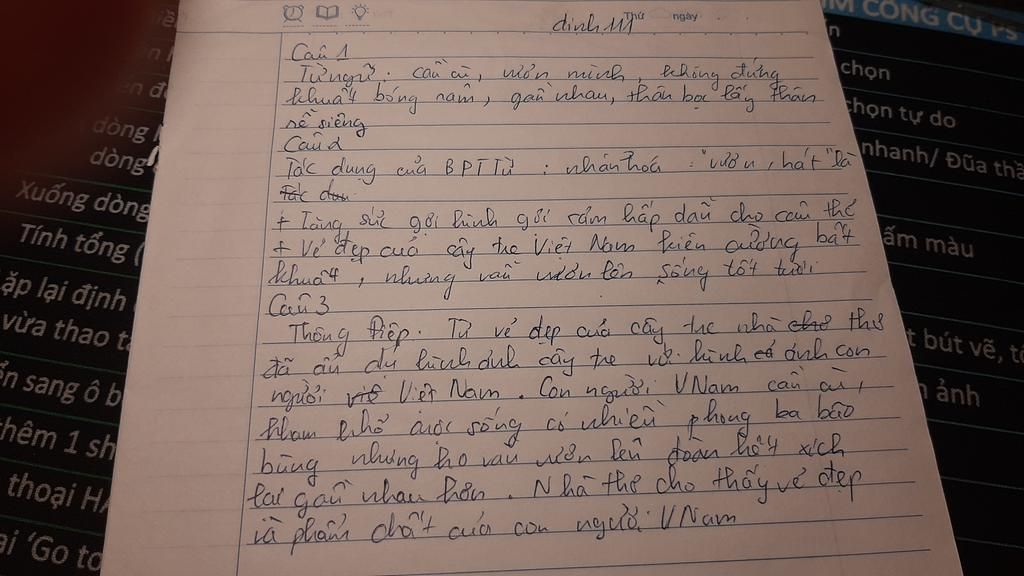 Thứ ngày
dinh 117
Câu 1
Từ ngữ: cần cù, vươn mình, không đứng
khuất bóng râm, gần nhau, thân bọc lấy thân
rễ siêng
Câu 2
Tác dụng của BPTTừ: nhân hoá: "vươn, hát" là
+ Tăng sức gợi hình gợi cảm hấp dẫn cho câu thơ
+ Vẻ đẹp của cây tre Việt Nam kiên cường bất
khuất, nhưng vẫn vươn lên sống tốt tươi
Câu 3
Thông điệp. Từ vẻ đẹp của cây tre nhà thơ
đã ẩn dụ hình ảnh cây tre với hình ảnh con
người Việt Nam. Con người VNam cần cù,
tham khổ cuộc sống có nhiều phong ba bão
bùng nhưng họ vẫn vươn lên đoàn kết xích
lại gần nhau hơn. Nhà thơ cho thấy vẻ đẹp
và phẩm chất của con người VNam
ÌM CÔNG CỤ PS
chọn
chọn tự do
nhanh/ Đũa thầ
ấm màu
t bút vẽ, tẩ
n ảnh
dòng
dòng
Xuống dòng
Tính tổng (
ặp lại định
vừa thao tá
ển sang ô b
thêm 1 sh
thoại HA
ại 'Go to